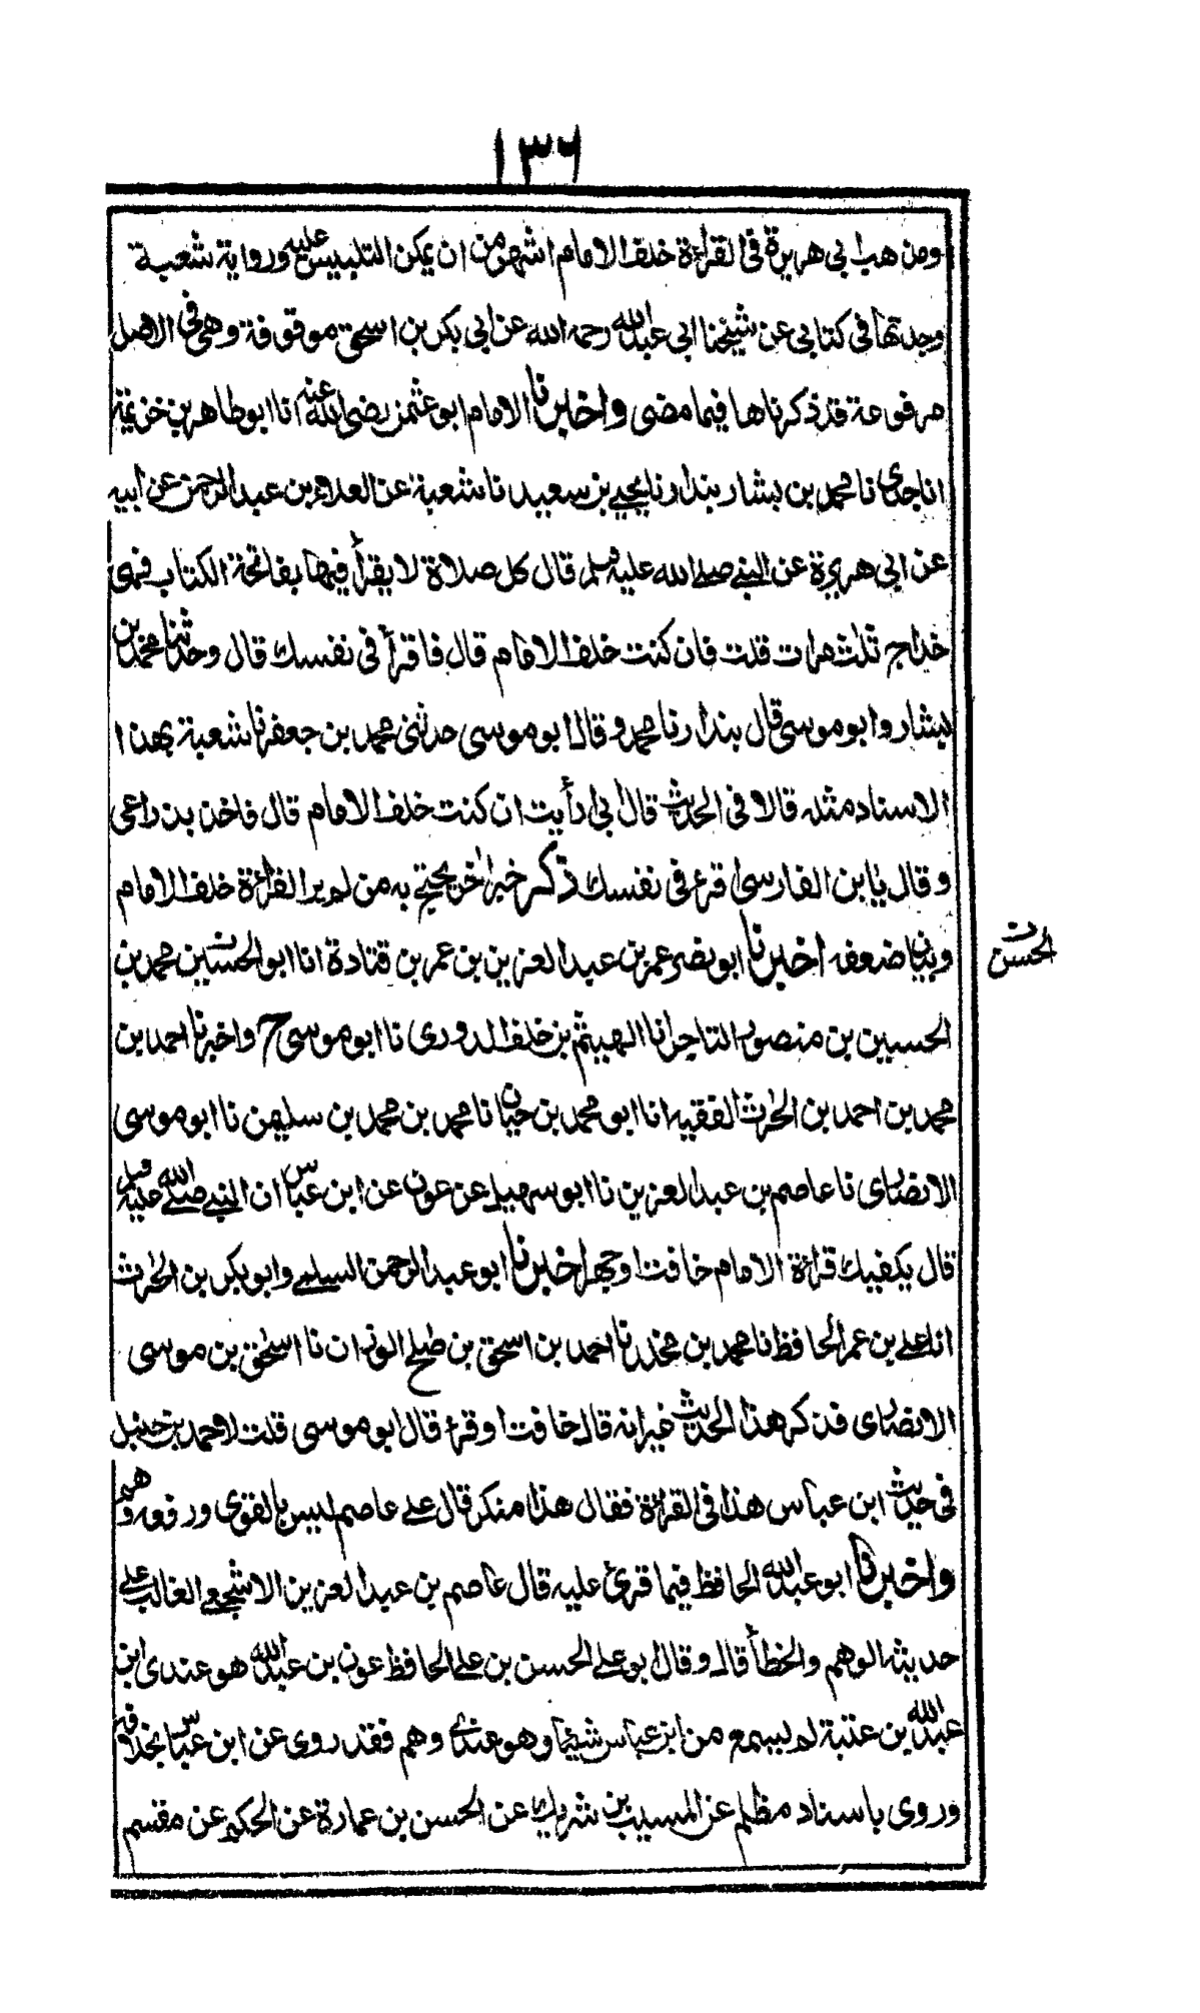 ١٣٦
ومذهب ابي هريرة في القراءة خلف الامام اشهر من ان يمكن التلبيس عليه ورواية شعبة
وجدتها في كتابي عن شيخنا ابي عبد الله رحمه الله عن ابي بكر بن اسحق موقوفة وهي في الاصل
مرفوعة قد ذكرناها فيما مضى واخبرنا الامام ابو عثمن رضى الله عنه انا ابو طاهر بن خزيمة
انا جدي نا محمد بن بشار بندار نا يحيى بن سعيد نا شعبة عن العلاء بن عبد الرحمن عن ابيه
عن ابي هريرة عن النبي صلى الله عليه وسلم قال كل صلاة لا يقرأ فيها بفاتحة الكتاب فهي
خداج ثلث مرات قلت فان كنت خلف الامام قال فاقرأ في نفسك قال وحدثنا محمد بن
بشار وابو موسى قال بندار نا محمد وقال ابو موسى حدثني محمد بن جعفر نا شعبة بهذا
الاسناد مثله قالا في الحديث قال ابي رأيت ان كنت خلف الامام قال فاخذ بذراعي
وقال يا ابن الفارسي اقرء في نفسك ذكر خبر اخر يحتج به من لم ير القراءة خلف الامام
وبيان ضعفه اخبرنا ابو نصر عمر بن عبد العزيز بن عمر بن قتادة انا ابو الحسين محمد بن
الحسن ن
الحسين بن منصور التاجر انا الهيثم بن خلف الدوري نا ابو موسى ح واخبرنا احمد بن
محمد بن احمد بن الحرث الفقيه انا ابو محمد بن حيان نا محمد بن محمد بن سليمن نا ابو موسى
الانصاري نا عاصم بن عبد العزيز نا ابو سهيل عن عون عن ابن عباس ان النبي صلى الله عليه وسلم
قال يكفيك قراءة الامام خافت او جهر اخبرنا ابو عبد الرحمن السلمي وابو بكر بن الحرث
انا علي بن عمر الحافظ نا محمد بن مخلد نا احمد بن اسحق بن صلح الوزان نا اسحق بن موسى
الانصاري فذكر هذا الحديث غير انه قال خافت او قرء قال ابو موسى قلت لاحمد بن حنبل
في حديث ابن عباس هذا في القراءة فقال هذا منكر قال علي عاصم ليس بالقوي ورفعه وهم
واخبرنا ابو عبد الله الحافظ فيما قرئ عليه قال عاصم بن عبد العزيز بن الاشجعي الغالب على
حديثه الوهم والخطأ قال وقال ابو علي الحسن بن علي الحافظ عون بن عبد الله هو عندي ابن
عبد الله بن عتبة لم يسمع من ابن عباس شيئا وهو عندي وهم فقد روى عن ابن عباس بخلافه
وروى باسناد مظلم عن المسيب بن شريك عن الحسن بن عمارة عن الحكم عن مقسم